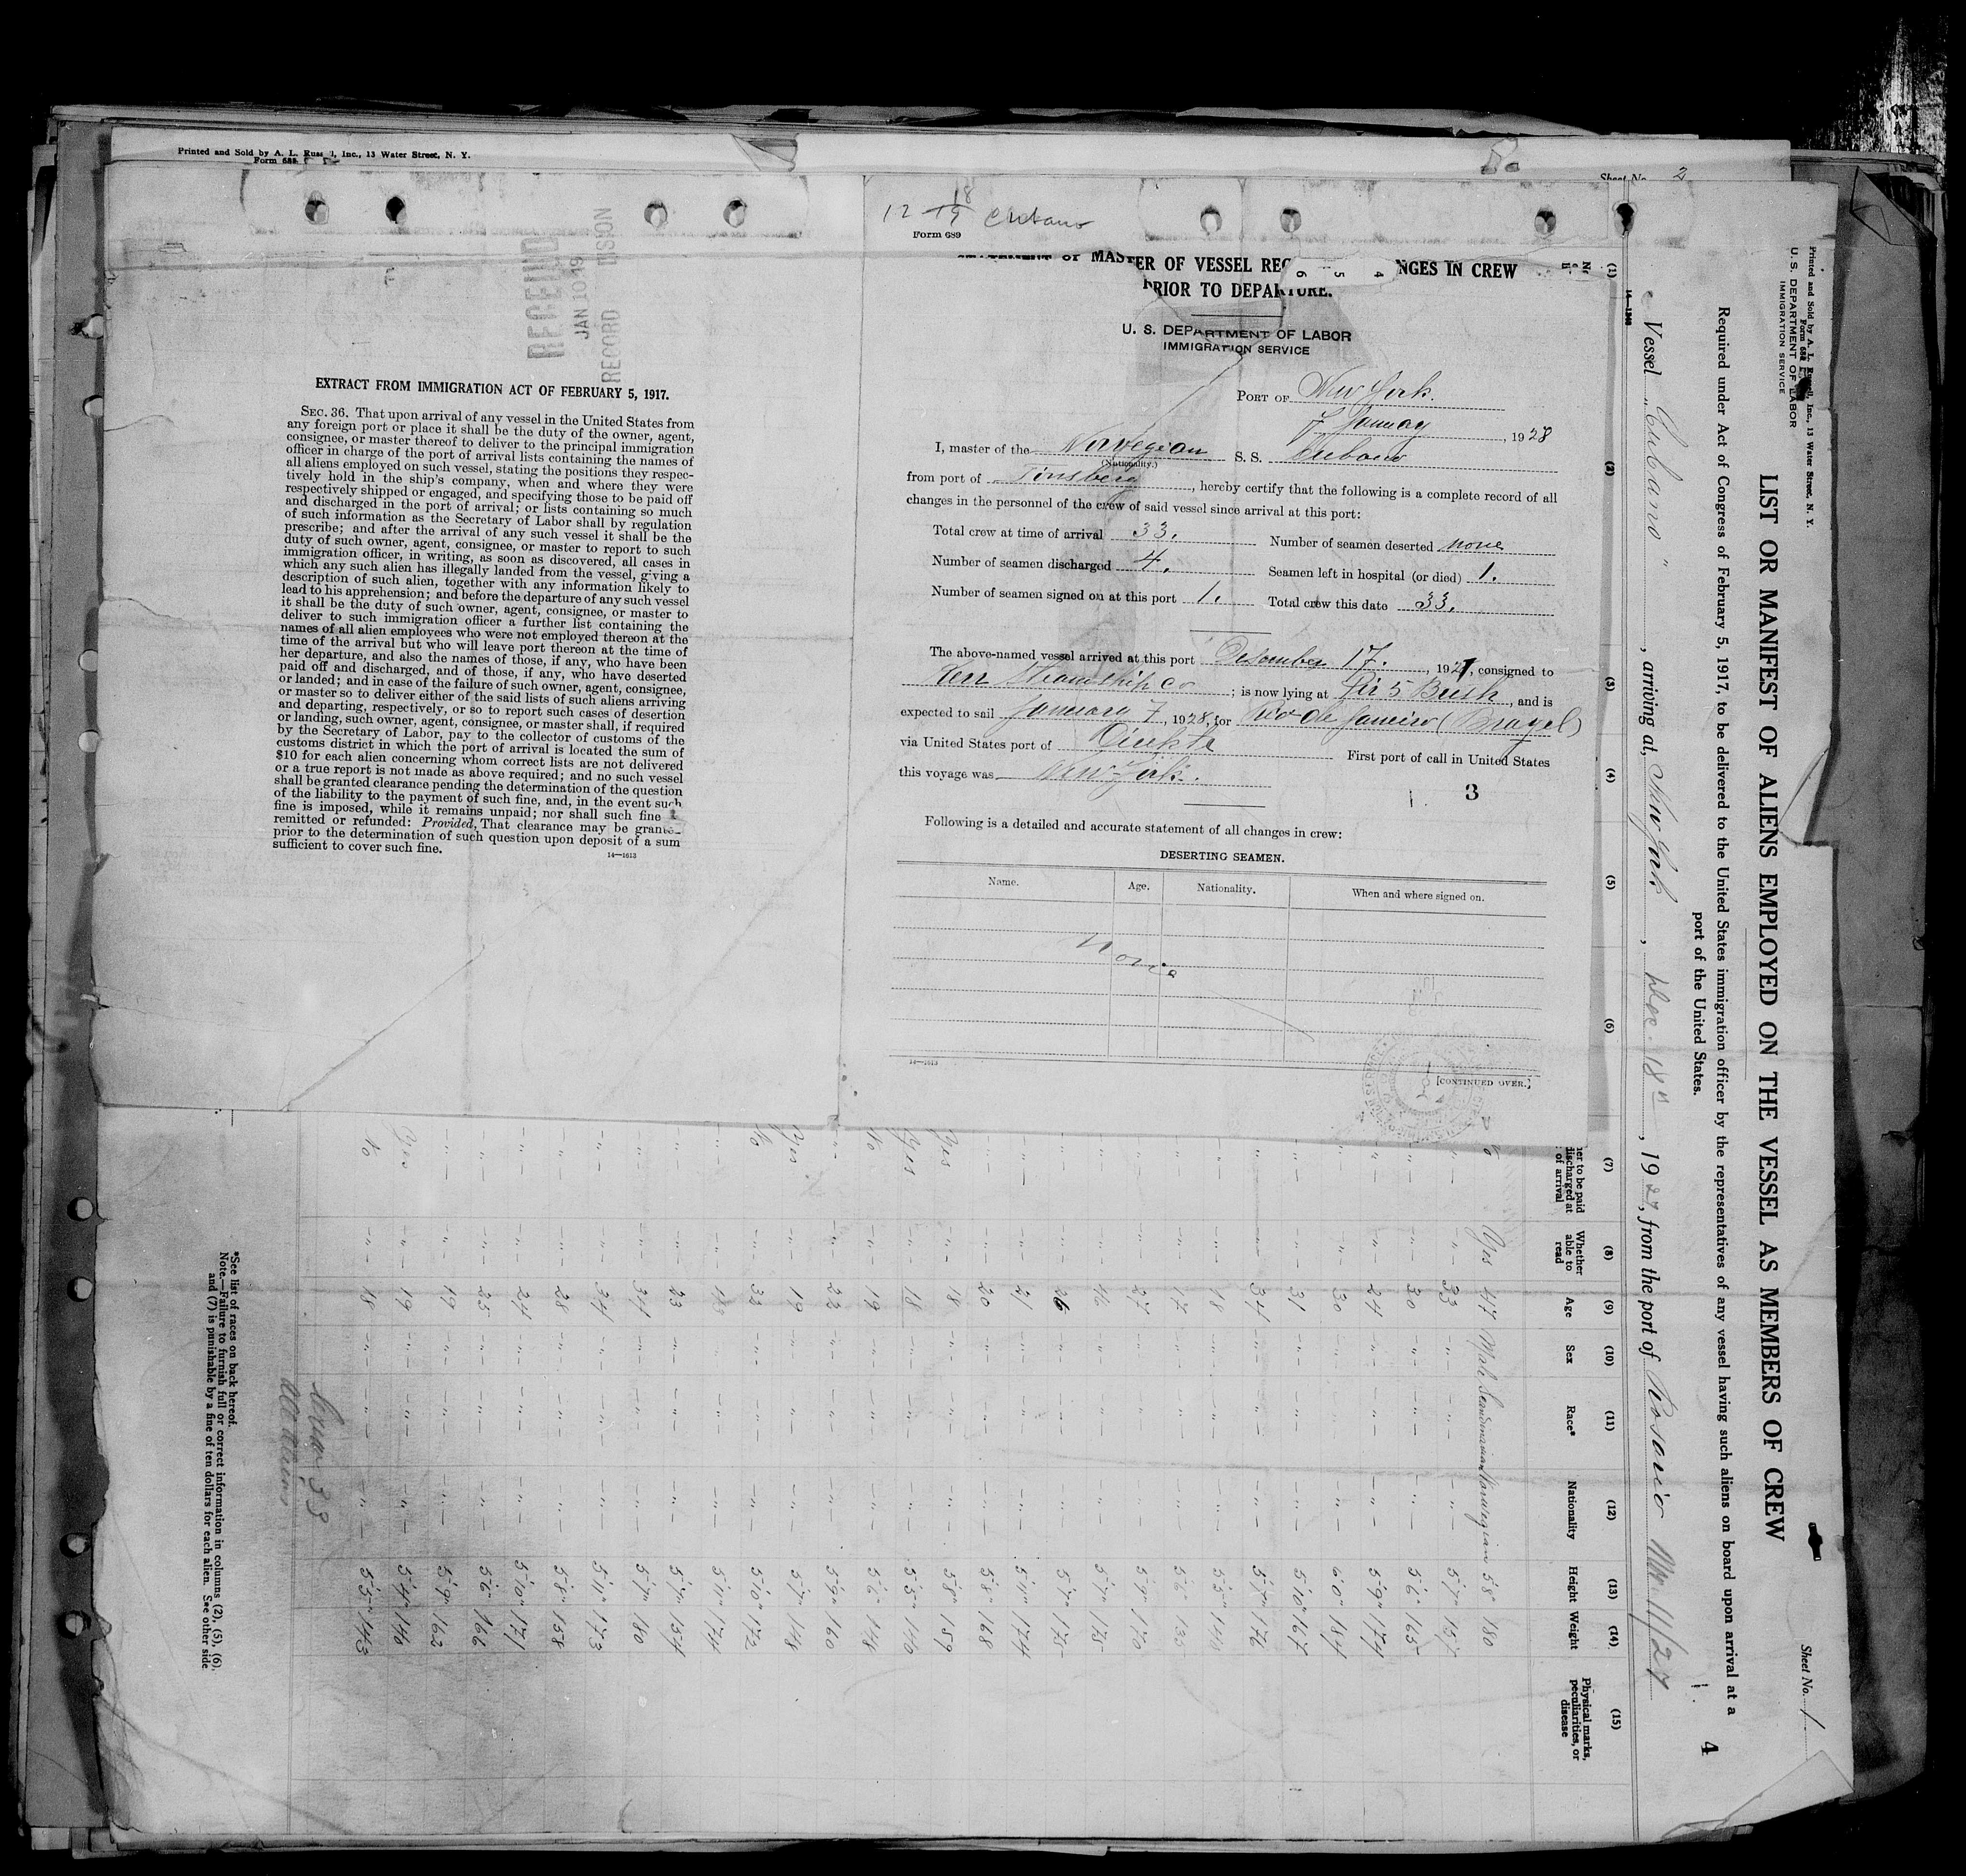 Printed and Sold by A. L. Russ l, Inc., 13 Water Street, N. Y.
Form 688
Sheet No. 2
RECEIVED
JAN 10 19
RECORD DIVISION
EXTRACT FROM IMMIGRATION ACT OF FEBRUARY 5, 1917.
SEC. 36. That upon arrival of any vessel in the United States from
any foreign port or place it shall be the duty of the owner, agent,
consignee, or master thereof to deliver to the principal immigration
officer in charge of the port of arrival lists containing the names of
all aliens employed on such vessel, stating the positions they respec-
tively hold in the ship's company, when and where they were
respectively shipped or engaged, and specifying those to be paid off
and discharged in the port of arrival; or lists containing so much
of such information as the Secretary of Labor shall by regulation
prescribe; and after the arrival of any such vessel it shall be the
duty of such owner, agent, consignee, or master to report to such
immigration officer, in writing, as soon as discovered, all cases in
which any such alien has illegally landed from the vessel, giving a
description of such alien, together with any information likely to
lead to his apprehension; and before the departure of any such vessel
it shall be the duty of such owner, agent, consignee, or master to
deliver to such immigration officer a further list containing the
names of all alien employees who were not employed thereon at the
time of the arrival but who will leave port thereon at the time of
her departure, and also the names of those, if any, who have been
paid off and discharged, and of those, if any, who have deserted
or landed; and in case of the failure of such owner, agent, consignee,
or master so to deliver either of the said lists of such aliens arriving
and departing, respectively, or so to report such cases of desertion
or landing, such owner, agent, consignee, or master shall, if required
by the Secretary of Labor, pay to the collector of customs of the
customs district in which the port of arrival is located the sum of
$10 for each alien concerning whom correct lists are not delivered
or a true report is not made as above required; and no such vessel
shall be granted clearance pending the determination of the question
of the liability to the payment of such fine, and, in the event such
fine is imposed, while it remains unpaid; nor shall such fine
remitted or refunded: Provided, That clearance may be grante
prior to the determination of such question upon deposit of a sum
sufficient to cover such fine.
14—1613
12 18 19 Cubano
Form 689
STATEMENT OF MASTER OF VESSEL REG NGES IN CREW
PRIOR TO DEPARTURE.
6 5 4
U. S. DEPARTMENT OF LABOR
IMMIGRATION SERVICE
PORT OF New York.
7 January, 1928
I, master of the Norwegian S. S. Cubano
(Nationality.)
from port of Tønsberg, hereby certify that the following is a complete record of all
changes in the personnel of the crew of said vessel since arrival at this port:
Total crew at time of arrival 33. Number of seamen deserted none
Number of seamen discharged 4. Seamen left in hospital (or died) 1.
Number of seamen signed on at this port 1. Total crew this date 33.
The above-named vessel arrived at this port Desember 17., 1927, consigned to
Kerr Steamship Co; is now lying at Pir 5 Bush, and is
expected to sail January 7, 1928, for Rio de Janeiro (Brazel)
via United States port of First port of call in United States
this voyage was New York.
3
Following is a detailed and accurate statement of all changes in crew:
DESERTING SEAMEN.
Name. Age. Nationality. When and where signed on.
None
14—1613
[CONTINUED OVER.]
Printed and Sold by A. L. Russell, Inc., 13 Water Street, N. Y.
Form 688
U. S. DEPARTMENT OF LABOR
IMMIGRATION SERVICE
Sheet No. 1
LIST OR MANIFEST OF ALIENS EMPLOYED ON THE VESSEL AS MEMBERS OF CREW
Required under Act of Congress of February 5, 1917, to be delivered to the United States immigration officer by the representatives of any vessel having such aliens on board upon arrival at a
port of the United States.
4
Vessel "Cubano", arriving at, New York, Dec. 18, 1927, from the port of Rosario 11/27
(1) (2) (3) (4) (5) (6) (7) (8) (9) (10) (11) (12) (13) (14) (15)
er to be paid discharged at of arrival
Whether able to read
Age
Sex
Race*
Nationality
Height
Weight
Physical marks, peculiarities, or disease
Yes 47 Male Scandinavian Norwegian 5'8" 180
33 5'7" 157
30 5'6" 165
24 5'9" 174
30 6'0" 184
31 5'10" 167
34 5'7" 176
18 5'5" 148
17 5'6" 135
27 5'9" 170
46 5'7" 175
26 5'7" 175
21 5'11" 174
20 5'8" 168
Yes 18 5'8" 159
Yes 18 5'5" 140
No 19 5'6" 148
23 5'9" 160
Yes 19 5'7" 148
No 33 5'10" 172
5'11" 174
23 5'7" 154
34 5'7" 180
34 5'11" 173
28 5'8" 158
24 5'10" 171
25 5'6" 166
19 5'9" 162
Yes 19 5'4" 146
No 18 5'5" 143
Crew 33
All Aliens
*See list of races on back hereof.
Note.—Failure to furnish full or correct information in columns (2), (5), (6),
and (7) is punishable by a fine of ten dollars for each alien. See other side